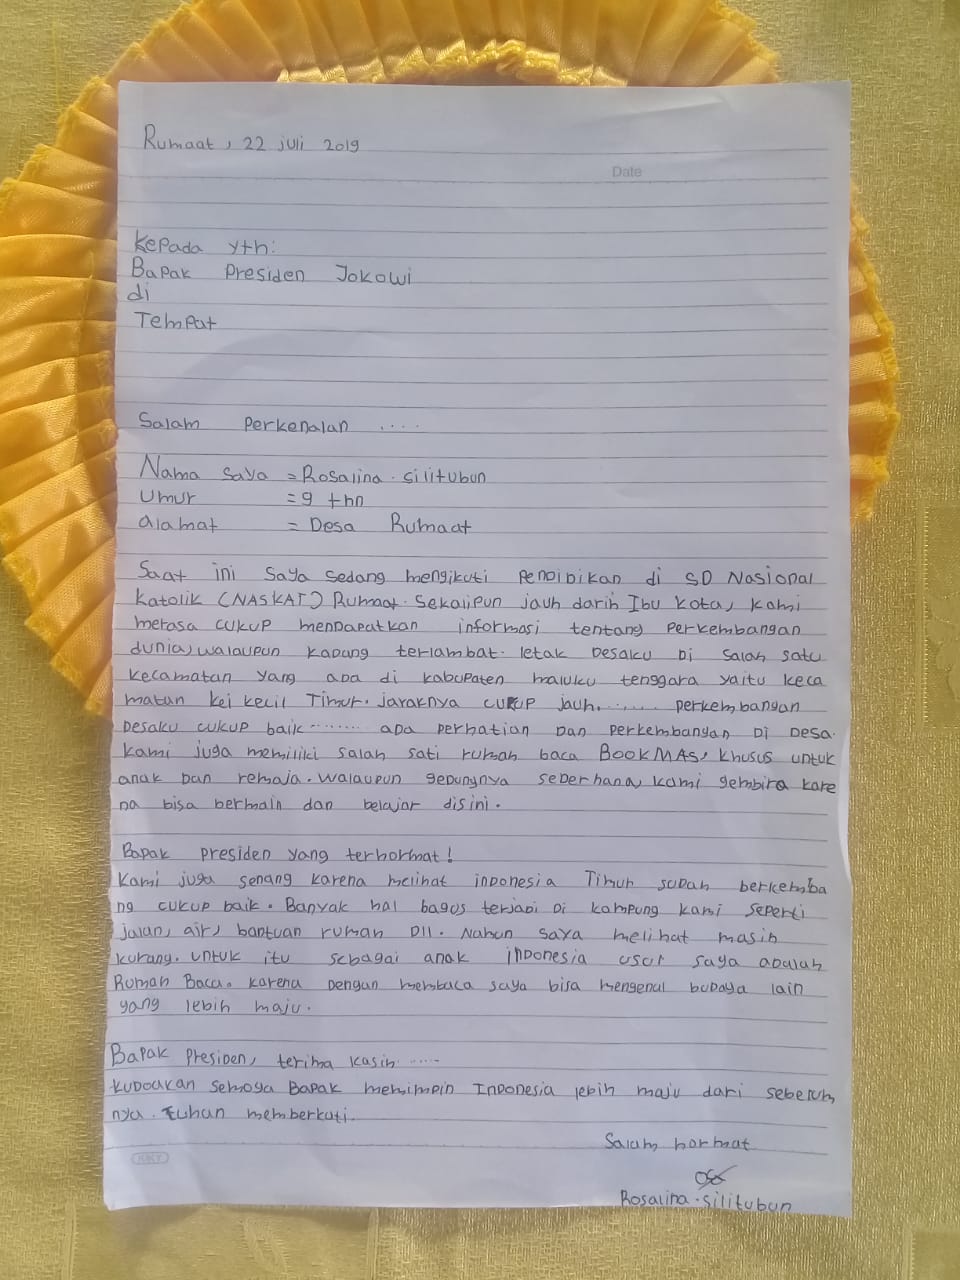 Rumaat, 22 juli 2019
Date
Kepada yth:
Bapak Presiden Jokowi
di
Tempat
Salam perkenalan ....
Nama saya = Rosalina. silitubun
Umur = 9 thn
alamat = Desa Rumaat
Saat ini saya sedang mengikuti pendidikan di SD Nasional
katolik (NASKAT) Rumaat. Sekalipun jauh darih Ibu kota, kami
merasa cukup mendapatkan informasi tentang perkembangan
dunia, walaupun kadang terlambat. letak desaku di salah satu
kecamatan yang ada di kabupaten maluku tenggara yaitu keca
matan kei kecil Timur. jaraknya cukup jauh....... perkembangan
desaku cukup baik........ ada perhatian dan perkembangan di desa.
kami juga memiliki salah sati rumah baca BookMAS, khusus untuk
anak dan remaja. walaupun gedungnya sederhana, kami gembira kare
na bisa bermain dan belajar disini.
Bapak presiden yang terhormat!
Kami juga senang karena melihat indonesia Timur sudah berkemba
ng cukup baik. Banyak hal bagus terjadi di kampung kami seperti
jalan, air, bantuan rumah dll. Nahun saya melihat masih
kurang. untuk itu sebagai anak indonesia usul saya adalah
Rumah Baca. karena dengan membaca saya bisa mengenal budaya lain
yang lebih maju.
Bapak Presiden, terima kasih .....
kudoakan semoga Bapak memimpin Indonesia lebih maju dari sebelum
nya. Tuhan memberkati.
Salam hormat
Rosalina. silitubun